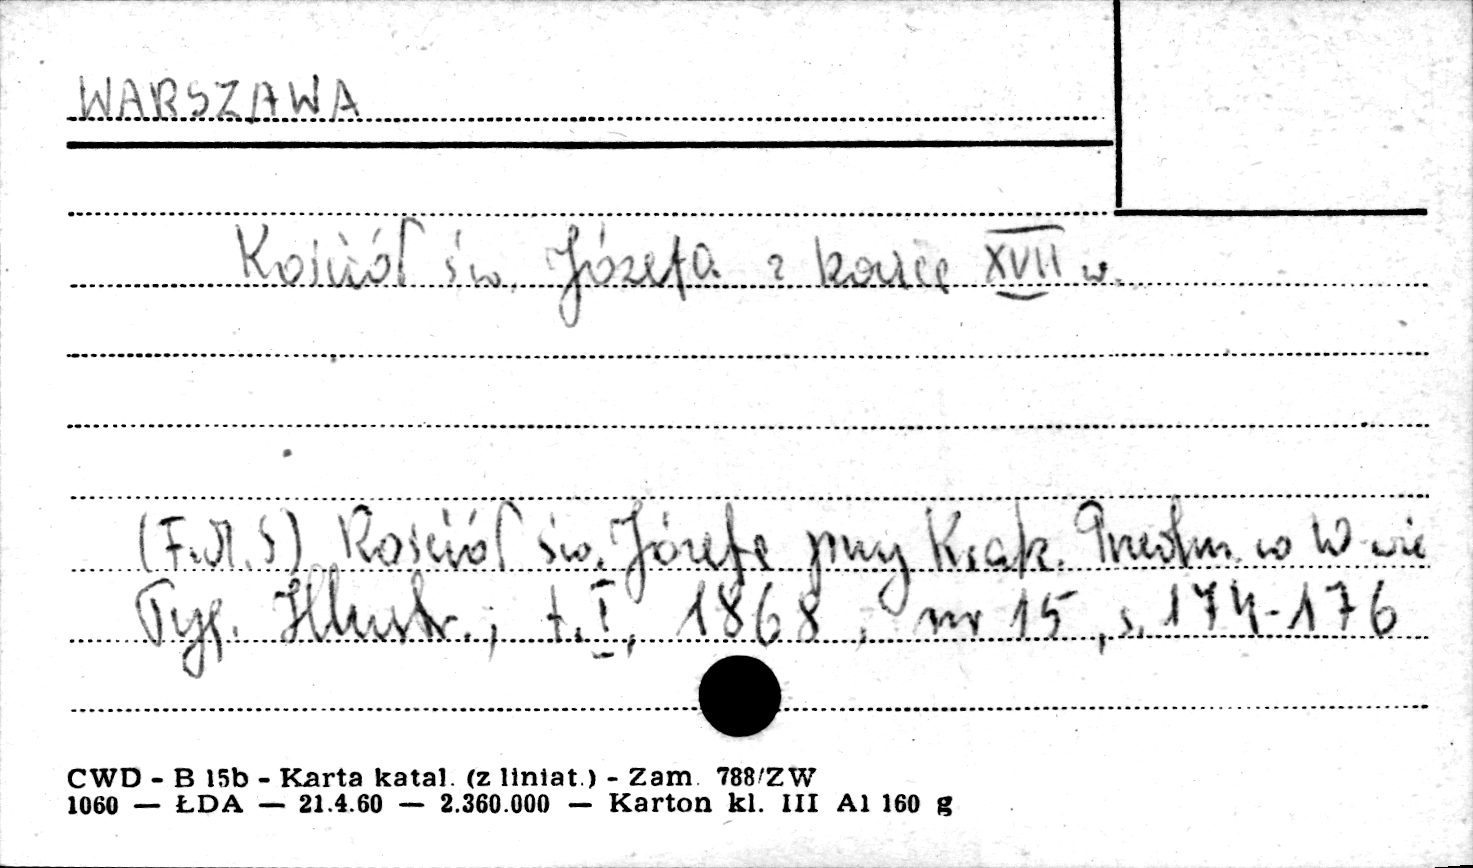 WARSZAWA
Kościół św. Józefa z końca XVII w.
(F.M.S) Kościół św. Józefa przy Krak. Przedm. w W-wie
Tyg. Illustr., t. I, 1868, nr 15, s. 174-176
CWD - B 15b - Karta katal. (z liniat.) - Zam. 788/ZW
1060 — ŁDA — 21.4.60 — 2.360.000 — Karton kl. III A1 160 g